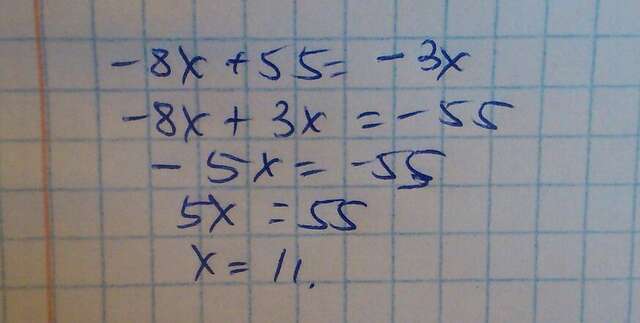 -8x + 55 = -3x
-8x + 3x = -55
-5x = -55
5x = 55
x = 11.